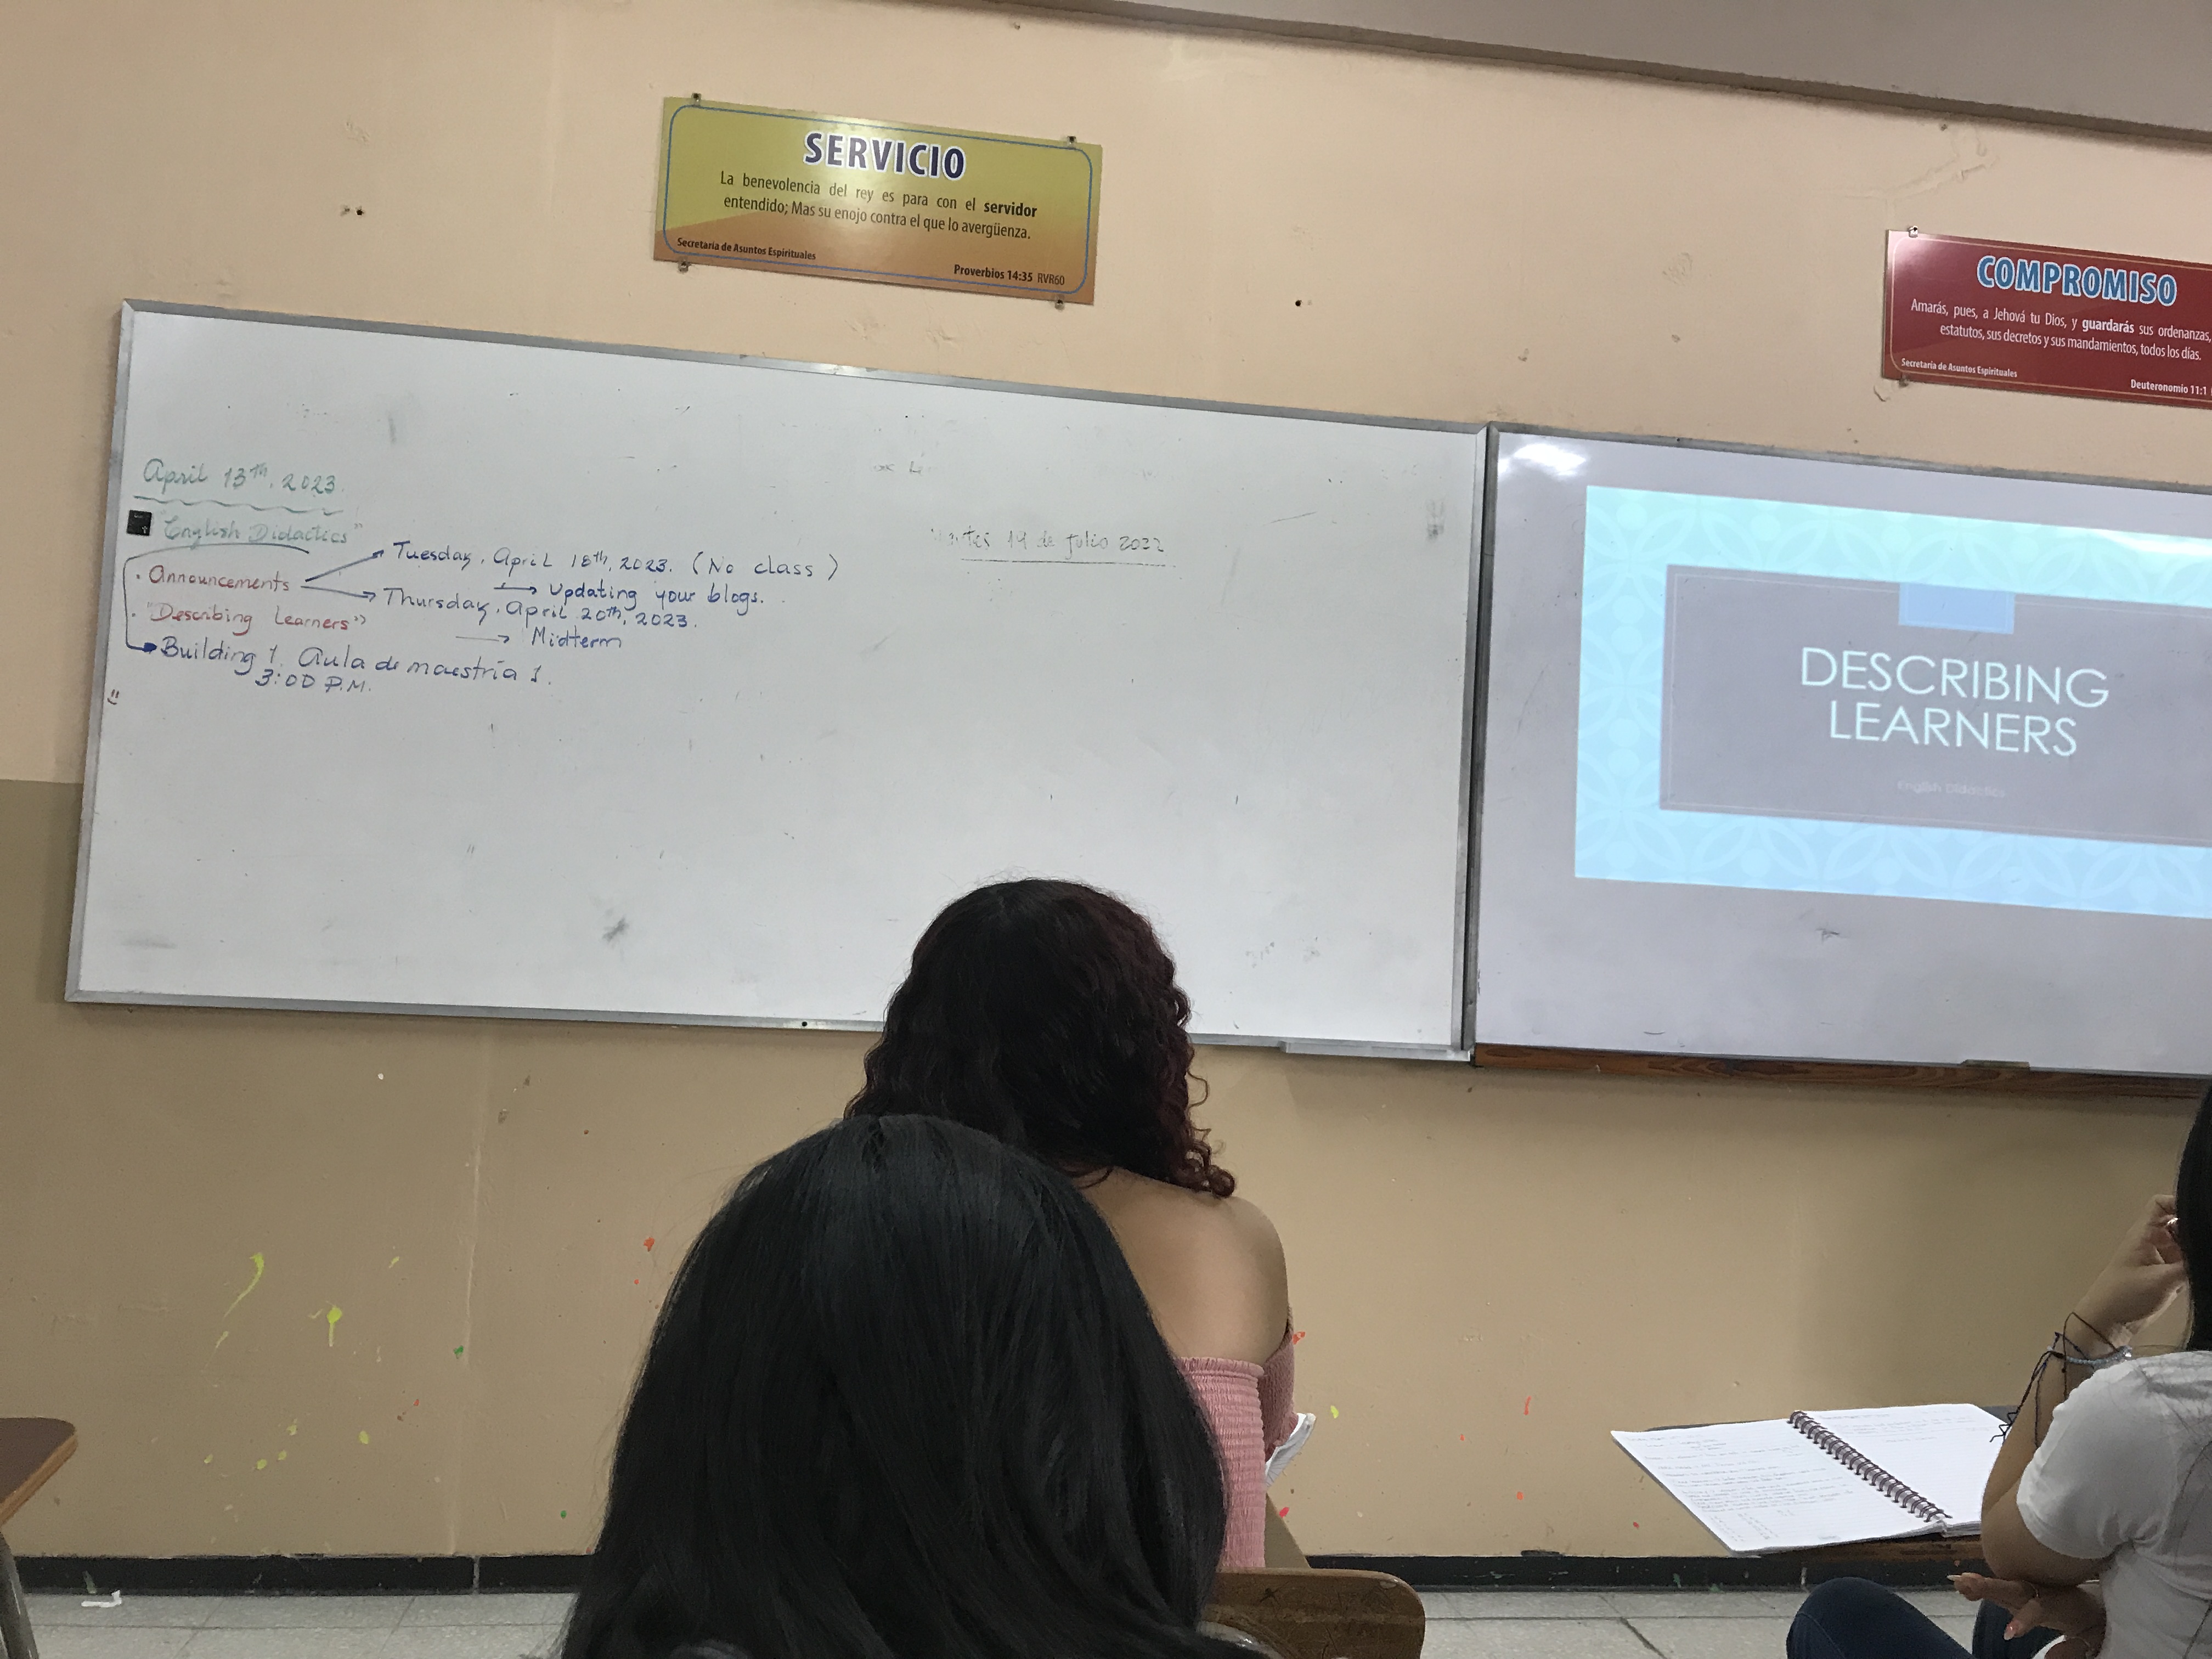 SERVICIO
La benevolencia del rey es para con el servidor
entendido; Mas su enojo contra el que lo avergüenza.
Secretaría de Asuntos Espirituales
Proverbios 14:35 RVR60
COMPROMISO
Amarás, pues, a Jehová tu Dios, y guardarás sus ordenanzas,
estatutos, sus decretos y sus mandamientos, todos los días.
Secretaría de Asuntos Espirituales
Deuteronomio 11:1
April 13th, 2023.
"English Didactics"
· Announcements
Tuesday, April 18th, 2023. (No class)
→ Updating your blogs.
Thursday, April 20th, 2023.
→ Midterm
· "Describing Learners"
Building 1. Aula de maestría 1.
3:00 P.M.
19 de julio 2022
DESCRIBING
LEARNERS
English Didactics